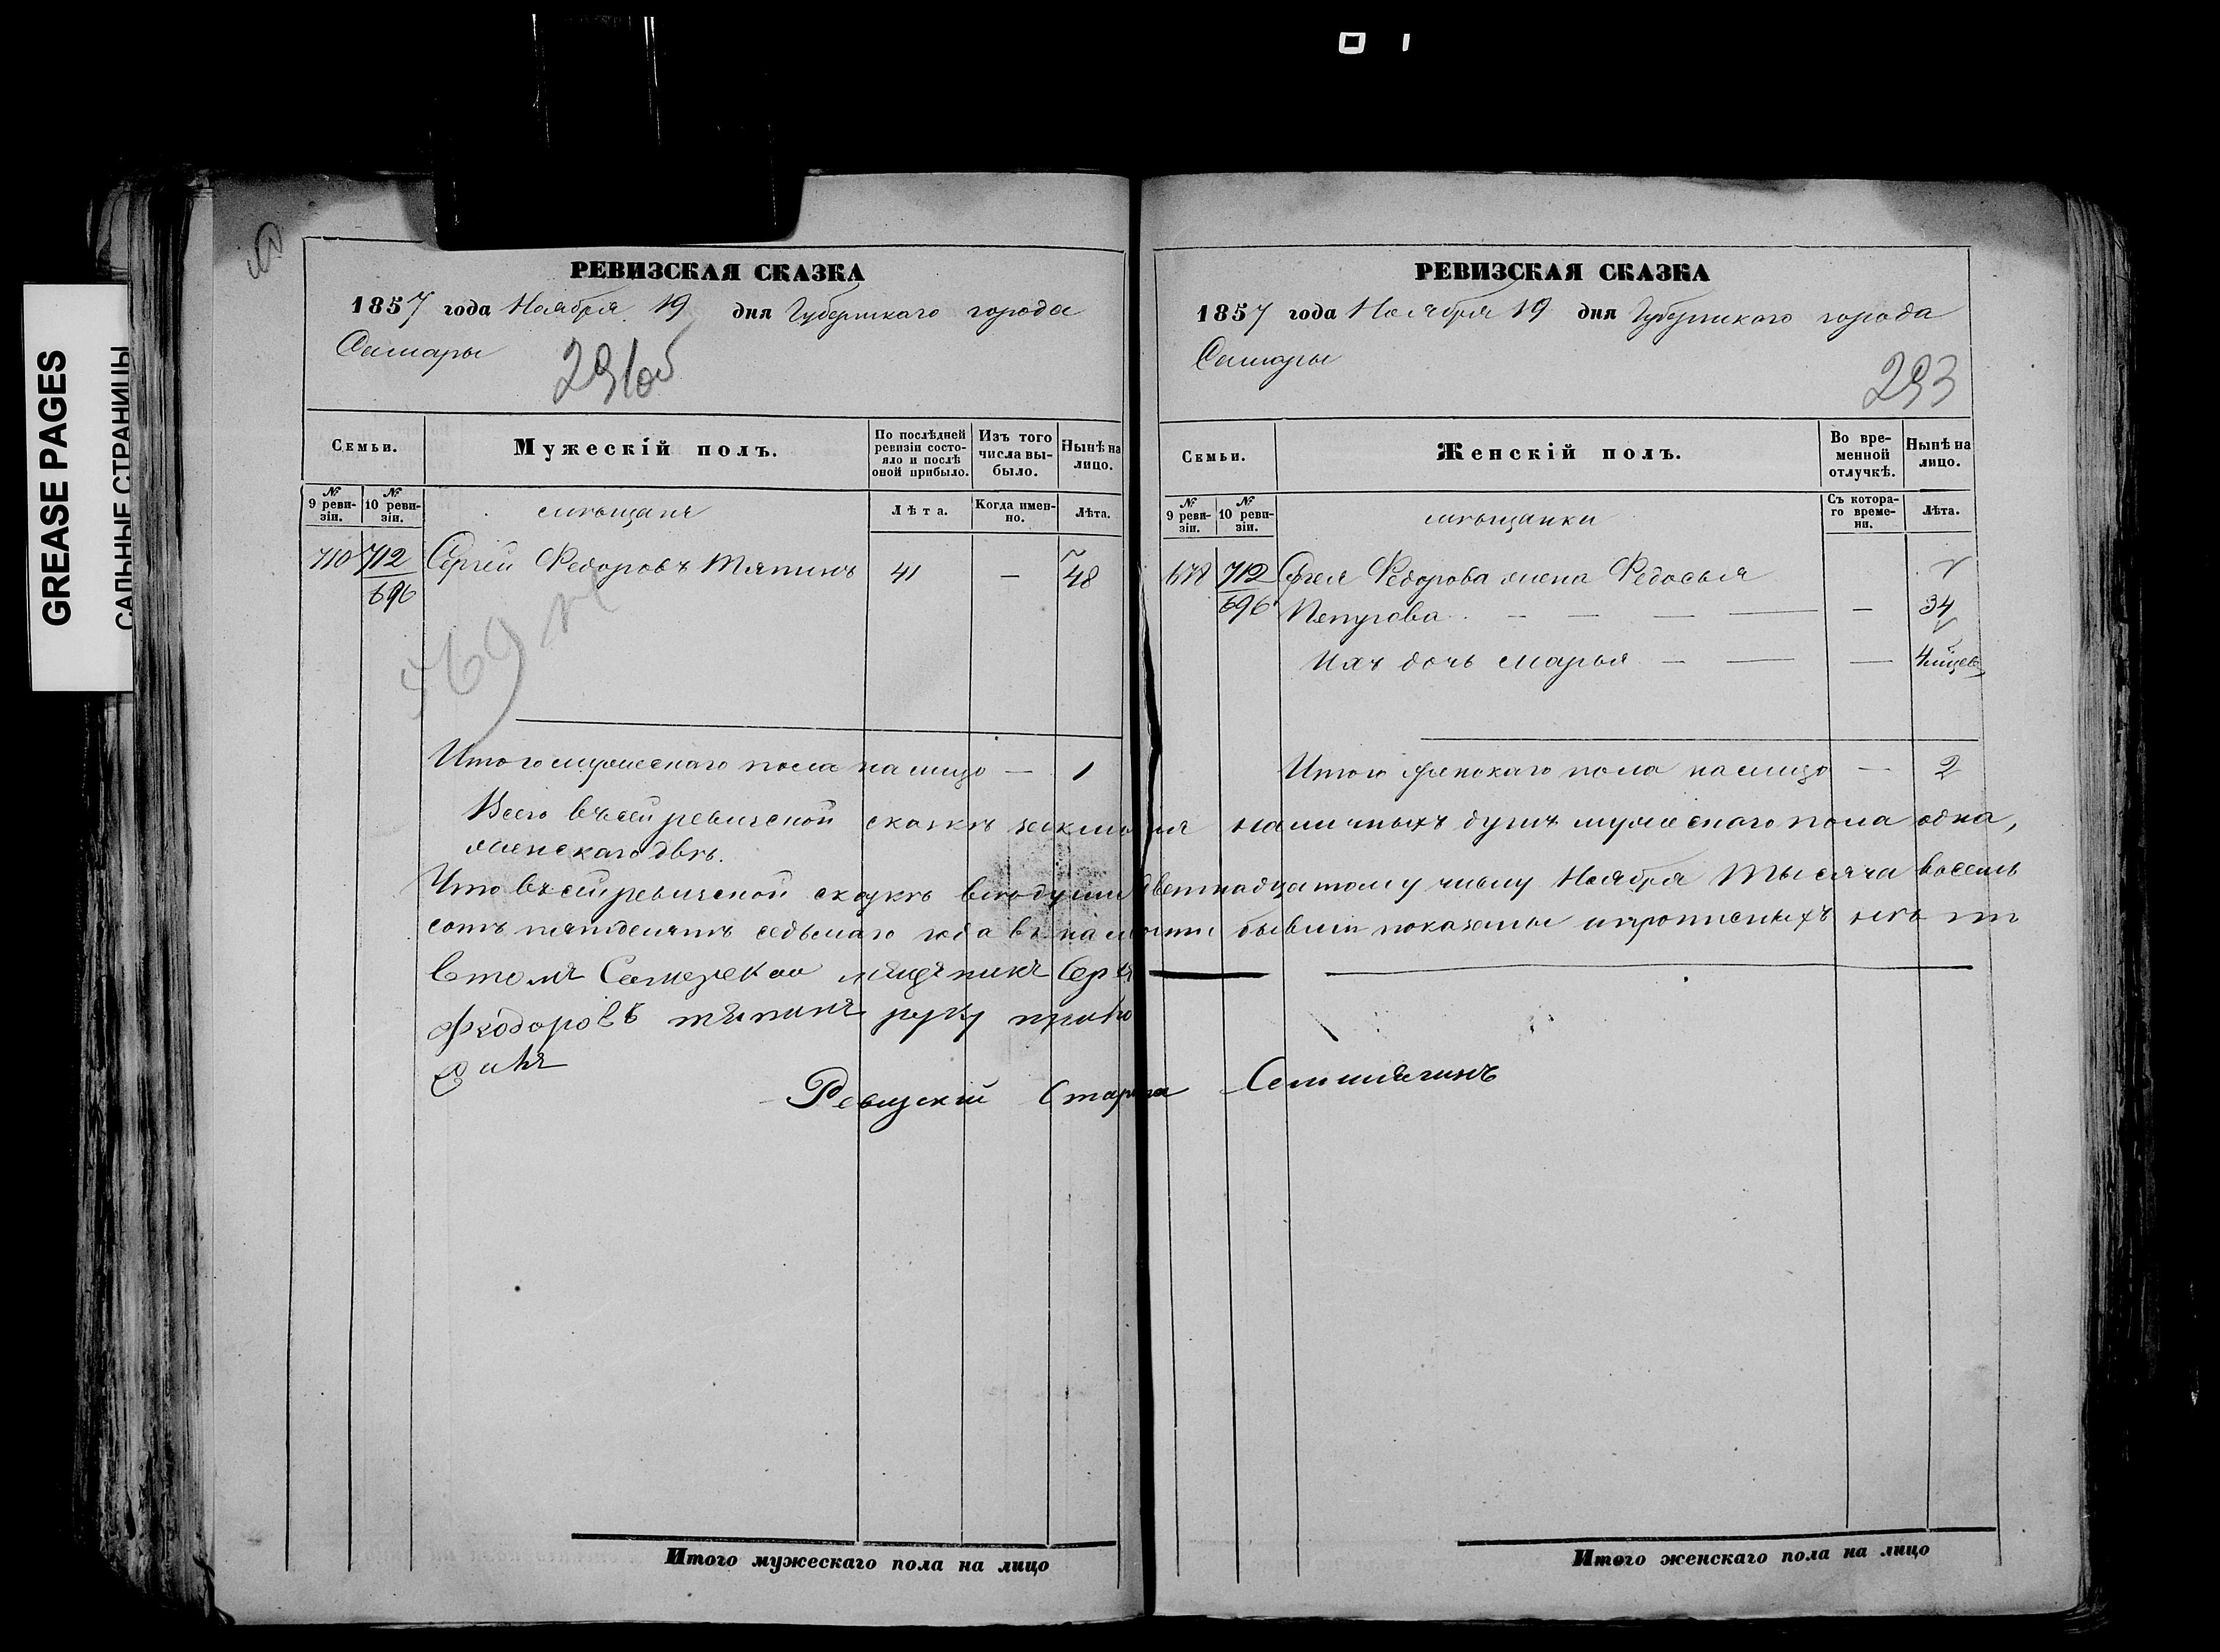 GREASE PAGES
САЛЬНЫЕ СТРАНИЦЫ
РЕВИЗСКАЯ СКАЗКА
1857 года Ноября 19 дня Губернскаго города
Самары
291об
Семьи.
Мужескій полъ.
По послѣдней ревизіи состояло и послѣ оной прибыло.
Изъ того числа выбыло.
Нынѣ на лицо.
№ 9 ревизіи.
№ 10 ревизіи.
мѣщане
Лѣта.
Когда именно.
Лѣта.
710 712 Сергей Федоровъ Тяпинъ 41 — 48
696
Итого мужескаго пола на лицо — 1
РЕВИЗСКАЯ СКАЗКА
1857 года Ноября 19 дня Губернскаго города
Самары
293
Семьи.
Женскій полъ.
Во временной отлучкѣ.
Нынѣ на лицо.
№ 9 ревизіи.
№ 10 ревизіи.
мѣщанки
Съ котораго времени.
Лѣта.
678 712 Сергея Федорова жена Федосья
696 Петрова — 34
Ихъ дочь Марья — 4 мѣсяц
Итого женскаго пола на лицо — 2
Всего въ сей ревизской сказкѣ заключая наличныхъ душъ мужескаго пола одна,
женскаго двѣ.
Что въ сей ревизской сказкѣ всѣ души девятнадцатому числу Ноября Тысяча восемь
сотъ пятдесятъ седьмаго года въ наличности бывшія показаны и прописныхъ нѣтъ
втомъ Самарской мещенинъ Серги
Феодоровъ тяпинъ руку прило
жилъ
Ревизскій Староста
Итого мужескаго пола на лицо
Итого женскаго пола на лицо